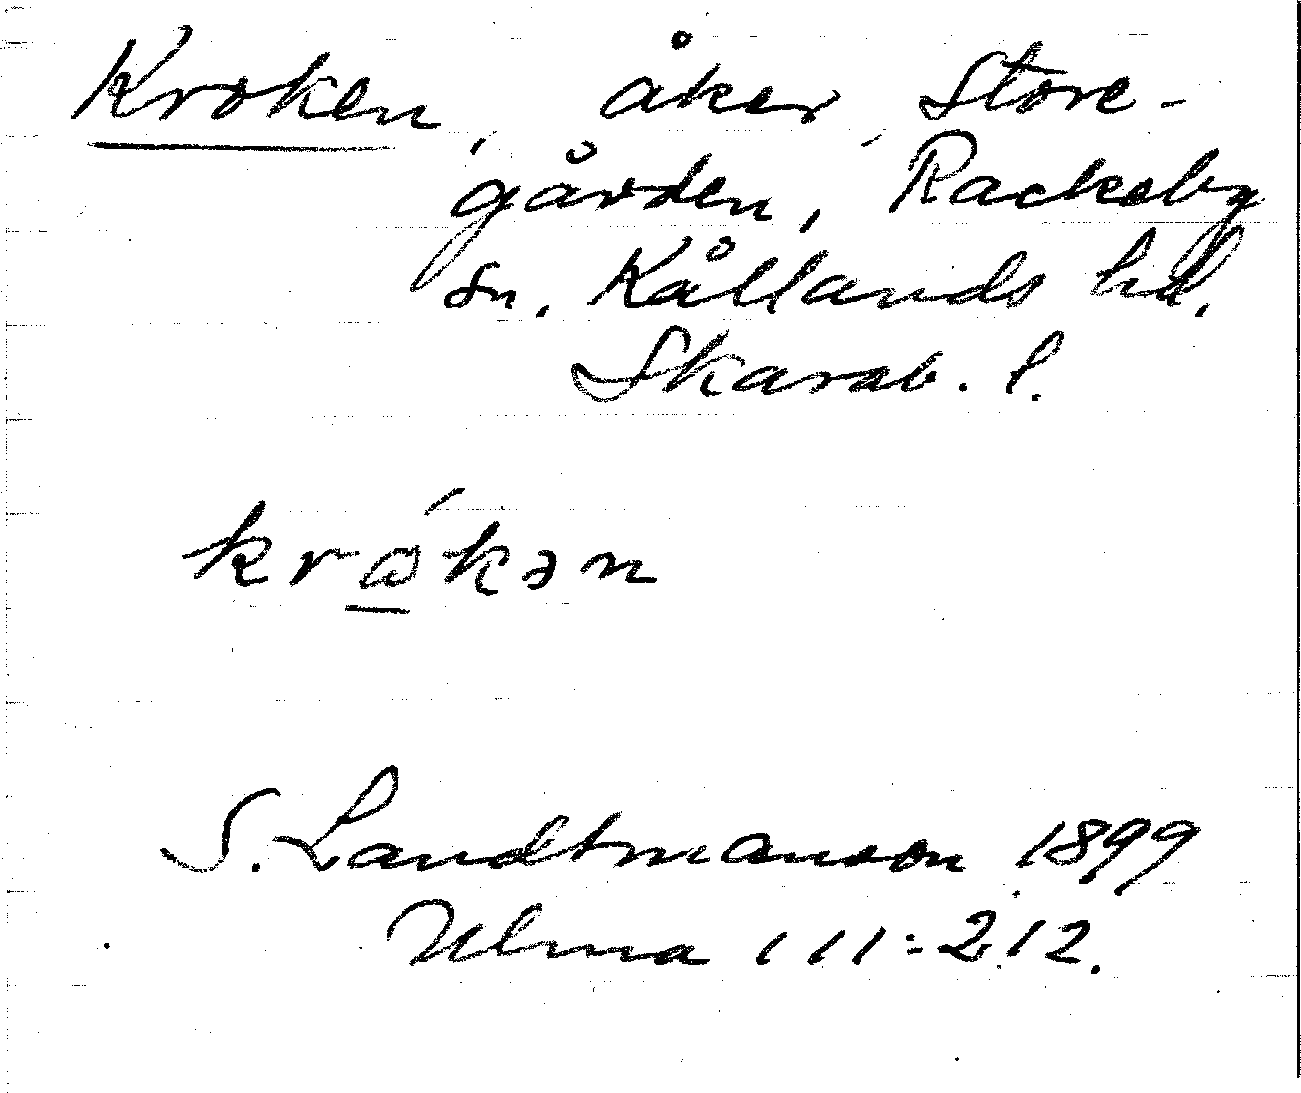 Kroken, åker, Store-
gården, Rackeby
sn. Kållands hd.
Skarab. l.
krώ̲kən
S. Landtmanson 1899
Ulma 111:212.